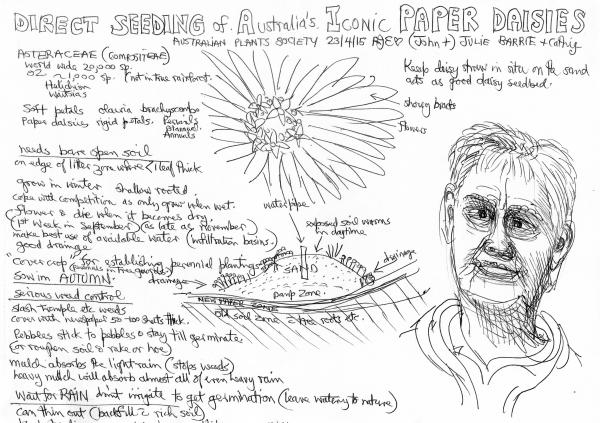 DIRECT SEEDING of AUSTRALIA'S ICONIC PAPER DAISIES
AUSTRALIAN PLANTS SOCIETY 23/4/15 (John +) JULIE BARRIE + Cathy
ASTERACEAE (COMPOSITEAE)
world wide 20,000 sp.
OZ ~ 1,000 sp. (not in true rainforest.
Soft petals olearia brachyscombe
Paper daisies rigid petals.
Perennials
Biannual
Annuals
needs bare open soil
on edge of litter zone where < 1 leaf thick
grow in winter shallow rooted.
cope with competition as only grow when wet.
flower & die when it becomes dry.
(1st week in September) (as late as november)
make best use of available water (infiltration basins.)
good drainage
"Cover crop" for establishing perennial plantings
(perennials in tree guards)
SOW in AUTUMN.
serious weed control
slash trample etc weeds
cover with newspaper 50-100 sheets thick.
Pebbles stick to pebbles & stay till germinate.
(or roughen soil & rake or hoe)
mulch absorbs the light rain (stops weeds)
heavy mulch will absorb almost all of even heavy rain
wait for RAIN don't irrigate to get germination (leave watering to nature)
can thin out (backfill c rich soil)
Keep daisy straw in situ on the sand
acts as good daisy seedbed.
showy bracts
flowers
water pipe
exposed soil warms
in daytime
drainage
SAND
drainage
Damp zone.
NEWSPAPER ZONE
Old soil zone c tree roots etc.